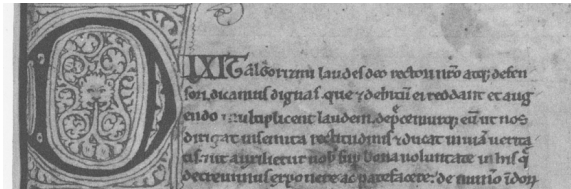 DIXIT algorizmi laudes deo rectori nr̃o atq; defen
sori dicamus dignas. que ⁊ debitũ ei reddant et aug
endo multiplicent laudem. dep̃cemurq; eũ ut nos
dirigat in semita rectitudinis ⁊ ducat in uiam uerita
tis. ⁊ ut auxilietur nob̃ sup̃ bona uoluntate in his q̃
decreuimus exponere ac patefacere: de num̃o indoꝝ